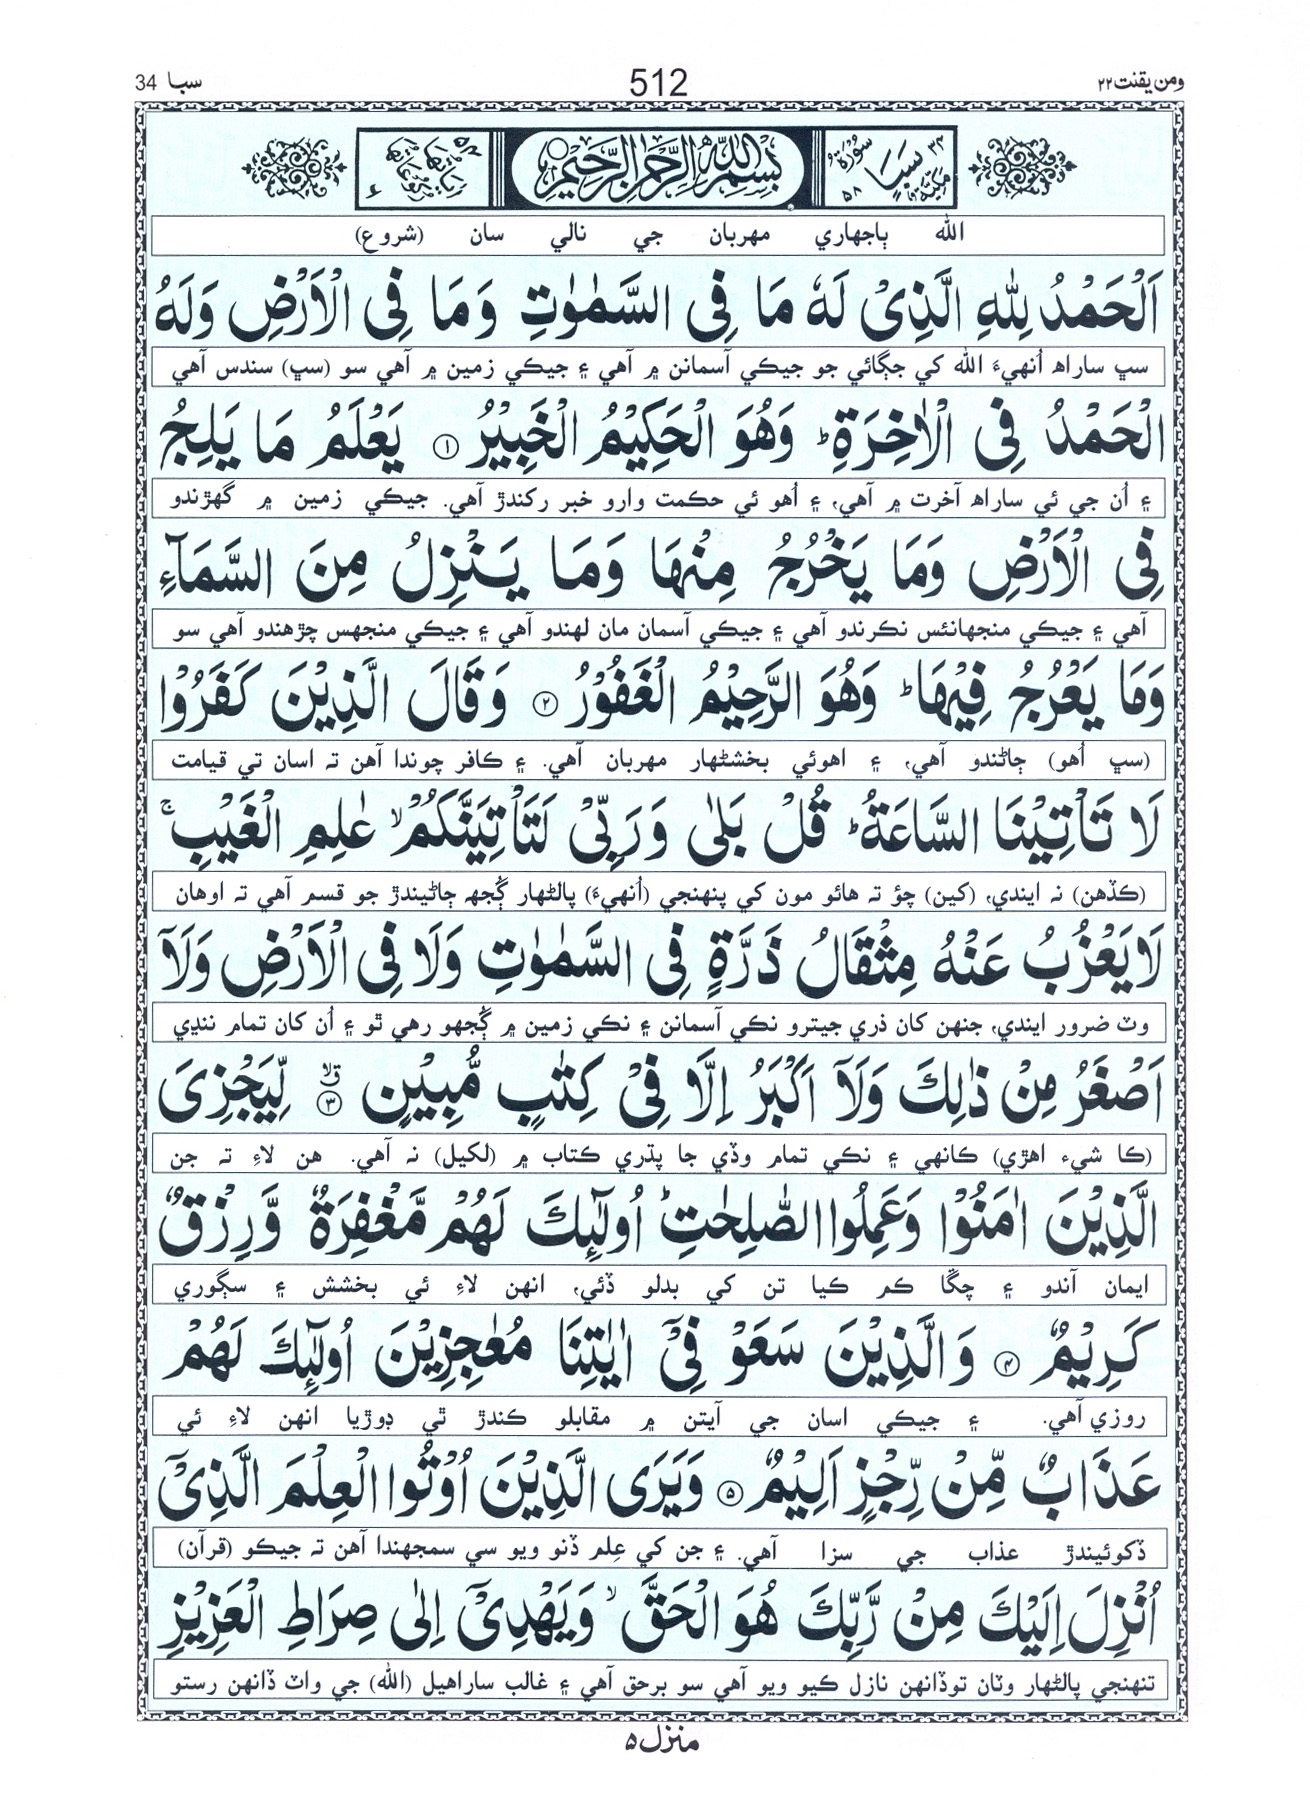 ومن يقنت ۲۲ 512 سبا 34
سُوْرَةُ سَبَاٍ مَكِّيَّةٌ ۳۴ ۵۸ بِسْمِ اللّٰهِ الرَّحْمٰنِ الرَّحِيْمِ
الله ٻاجهاري مهربان جي نالي سان (شروع)
اَلْحَمْدُ لِلّٰهِ الَّذِیْ لَهٗ مَا فِی السَّمٰوٰتِ وَمَا فِی الْاَرْضِ وَلَهُ
سڀ ساراھ اُنهيءَ الله کي جڳائي جو جيڪي آسمانن ۾ آهي ۽ جيڪي زمين ۾ آهي سو (سڀ) سندس آهي
الْحَمْدُ فِی الْاٰخِرَةِ ؕ وَهُوَ الْحَكِیْمُ الْخَبِیْرُ ۝۱ یَعْلَمُ مَا یَلِجُ
۽ اُن جي ئي ساراھ آخرت ۾ آهي، ۽ اُهو ئي حڪمت وارو خبر رکندڙ آهي. جيڪي زمين ۾ گهڙندو
فِی الْاَرْضِ وَمَا یَخْرُجُ مِنْهَا وَمَا یَنْزِلُ مِنَ السَّمَآءِ
آهي ۽ جيڪي منجهانئس نڪرندو آهي ۽ جيڪي آسمان مان لهندو آهي ۽ جيڪي منجهس چڙهندو آهي سو
وَمَا یَعْرُجُ فِیْهَا ؕ وَهُوَ الرَّحِیْمُ الْغَفُوْرُ ۝۲ وَقَالَ الَّذِیْنَ كَفَرُوْا
(سڀ اُهو) ڄاڻندو آهي، ۽ اهوئي بخشڻهار مهربان آهي. ۽ ڪافر چوندا آهن تہ اسان تي قيامت
لَا تَاْتِیْنَا السَّاعَةُ ؕ قُلْ بَلٰی وَرَبِّیْ لَتَاْتِیَنَّكُمْ ۙ عٰلِمِ الْغَیْبِ ۚ
(ڪڏهن) نہ ايندي، (کين) چؤ تہ هائو مون کي پنهنجي (اُنهيءَ) پالڻهار ڳُجهہ ڄاڻيندڙ جو قسم آهي تہ اوهان
لَا یَعْزُبُ عَنْهُ مِثْقَالُ ذَرَّةٍ فِی السَّمٰوٰتِ وَلَا فِی الْاَرْضِ وَلَاۤ
وٽ ضرور ايندي، جنهن کان ذري جيترو نڪي آسمانن ۽ نڪي زمين ۾ ڳُجهو رهي ٿو ۽ اُن کان تمام ننڍي
اَصْغَرُ مِنْ ذٰلِكَ وَلَاۤ اَكْبَرُ اِلَّا فِیْ كِتٰبٍ مُّبِیْنٍ ۝۳ لِّیَجْزِیَ
(ڪا شيء اهڙي) ڪانهي ۽ نڪي تمام وڏي جا پڌري ڪتاب ۾ (لکيل) نہ آهي. هن لاءِ تہ جن
الَّذِیْنَ اٰمَنُوْا وَعَمِلُوا الصّٰلِحٰتِ ؕ اُولٰٓىِٕكَ لَهُمْ مَّغْفِرَةٌ وَّرِزْقٌ
ايمان آندو ۽ چڱا ڪم ڪيا تن کي بدلو ڏئي، انهن لاءِ ئي بخشش ۽ سڳوري
كَرِیْمٌ ۝۴ وَالَّذِیْنَ سَعَوْ فِیْۤ اٰیٰتِنَا مُعٰجِزِیْنَ اُولٰٓىِٕكَ لَهُمْ
روزي آهي. ۽ جيڪي اسان جي آيتن ۾ مقابلو ڪندڙ ٿي ڊوڙيا انهن لاءِ ئي
عَذَابٌ مِّنْ رِّجْزٍ اَلِیْمٌ ۝۵ وَیَرَی الَّذِیْنَ اُوْتُوا الْعِلْمَ الَّذِیْۤ
ڏکوئيندڙ عذاب جي سزا آهي. ۽ جن کي عِلم ڏنو ويو سي سمجهندا آهن تہ جيڪو (قرآن)
اُنْزِلَ اِلَیْكَ مِنْ رَّبِّكَ هُوَ الْحَقَّ ۙ وَیَهْدِیْۤ اِلٰی صِرَاطِ الْعَزِیْزِ
تنهنجي پالڻهار وٽان توڏانهن نازل ڪيو ويو آهي سو برحق آهي ۽ غالب ساراهيل (الله) جي واٽ ڏانهن رستو
منزل ۵